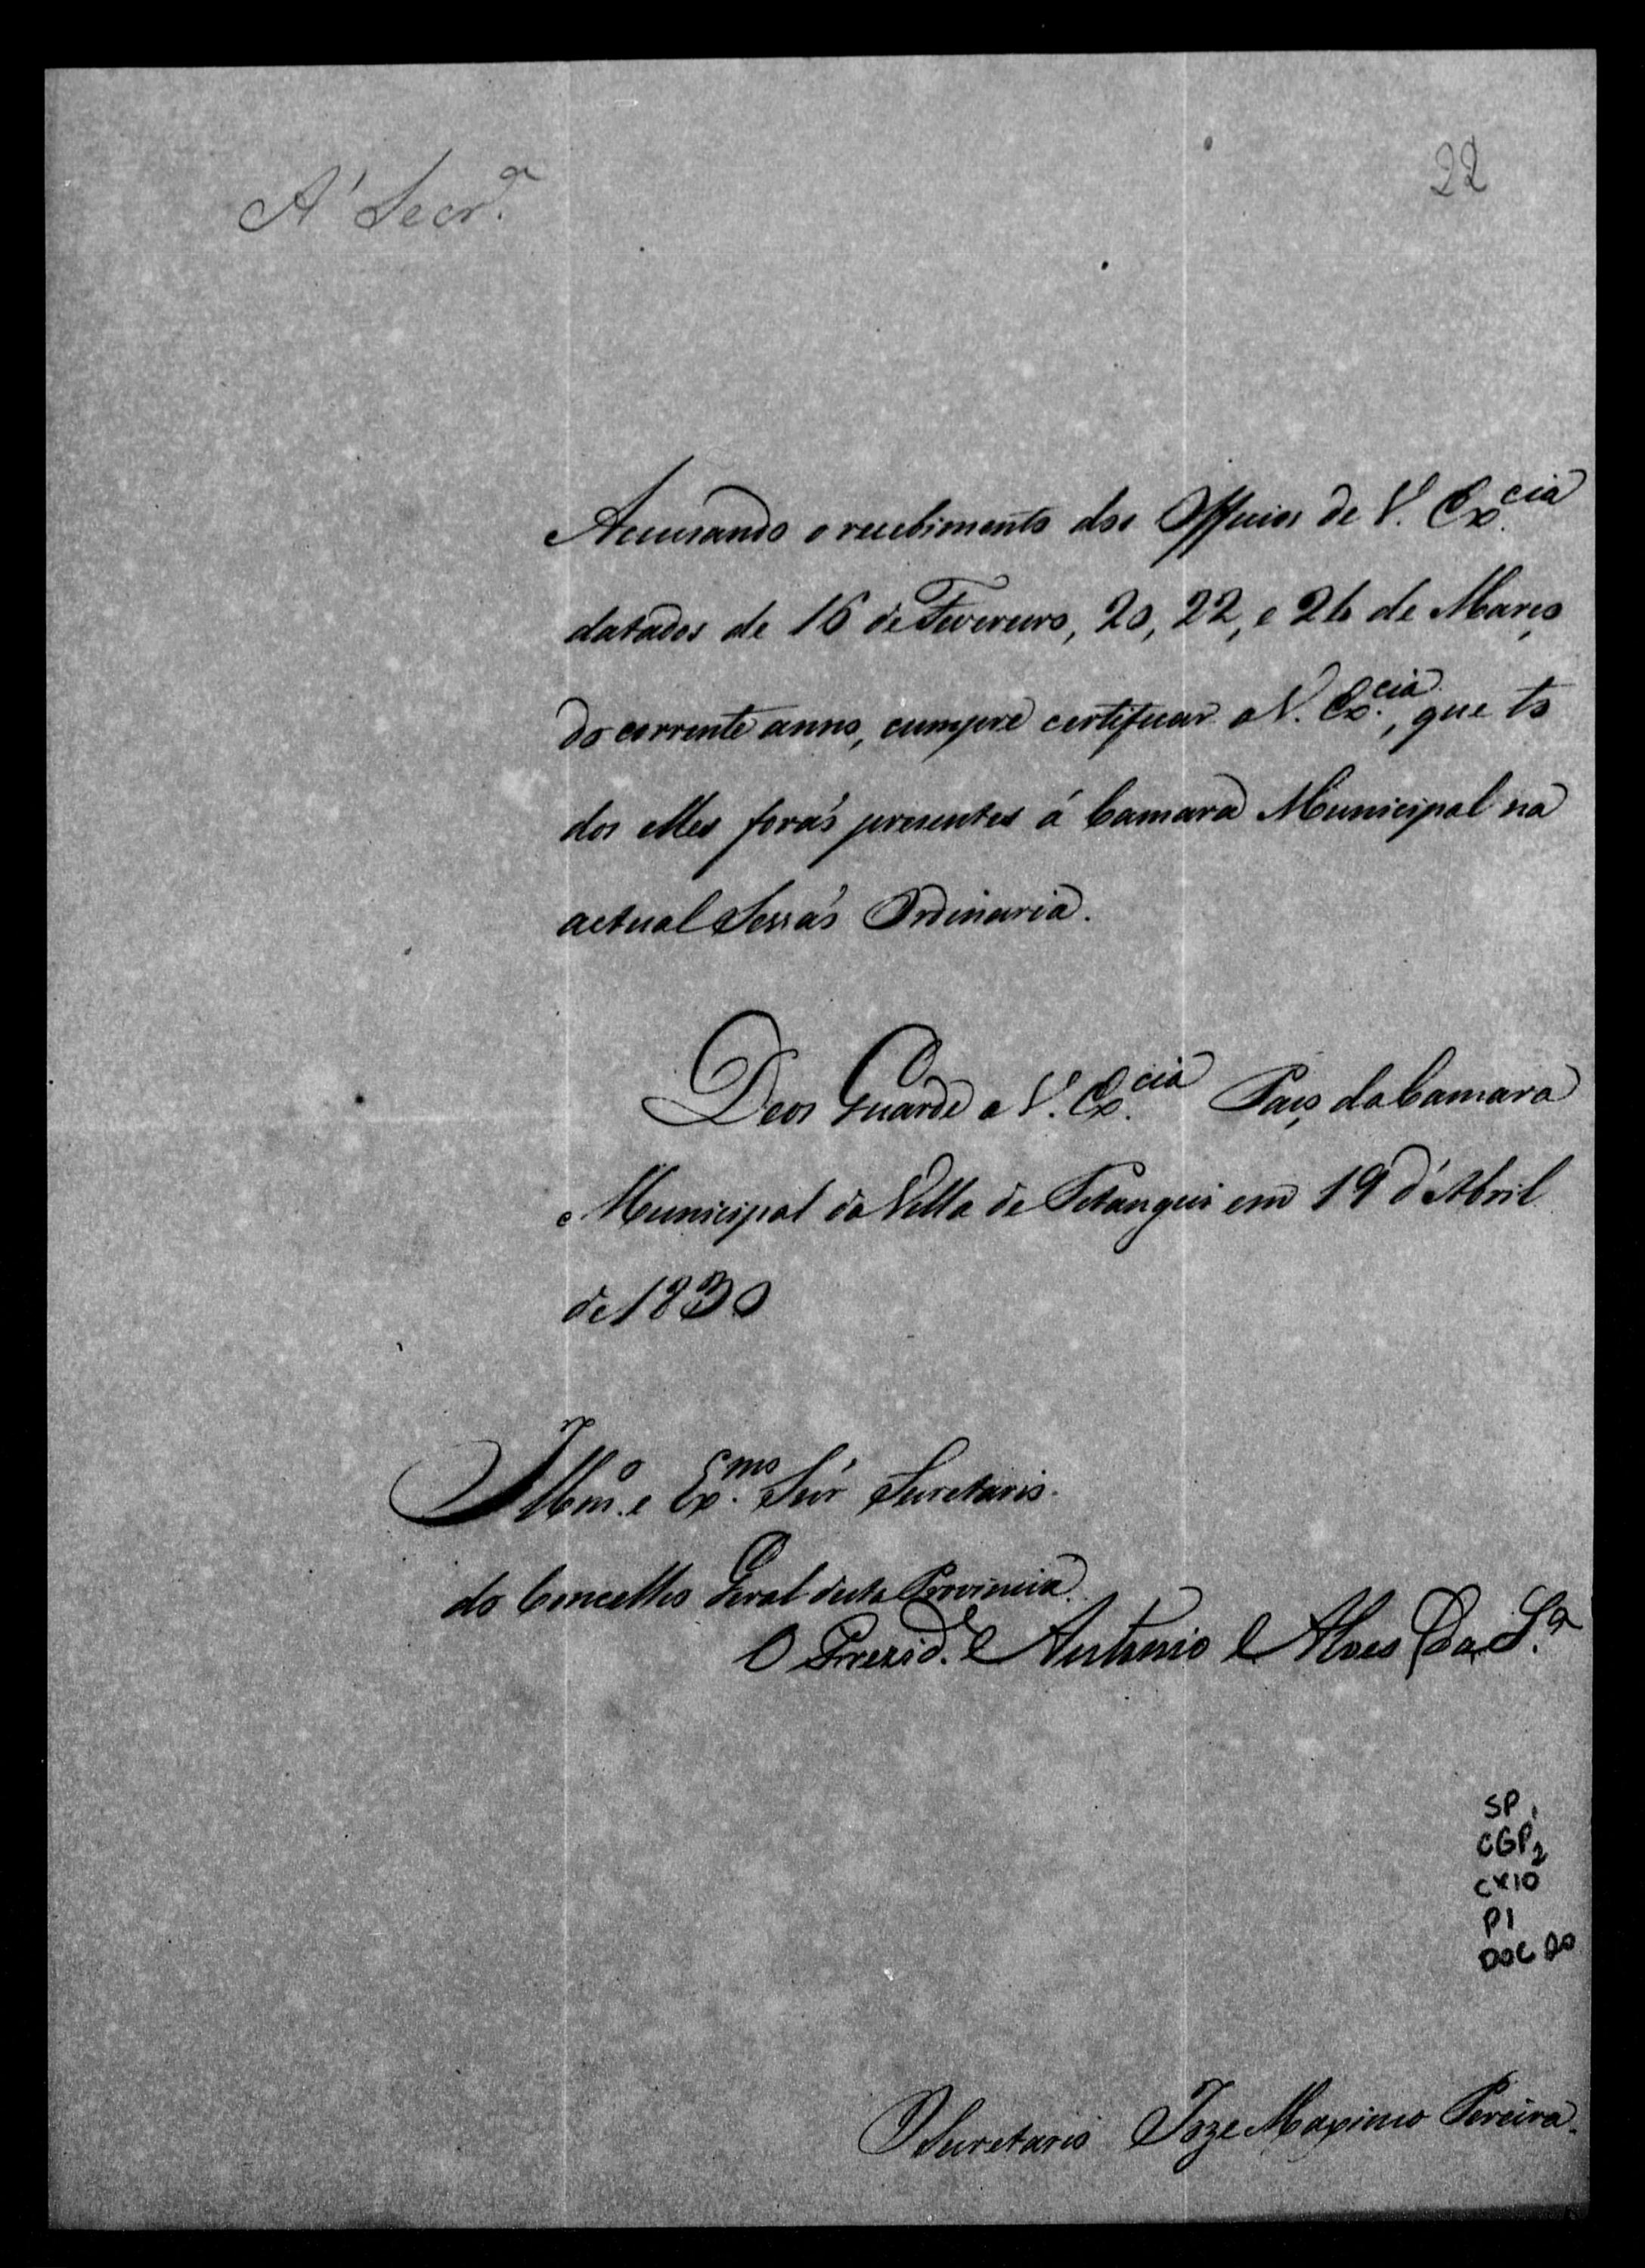 A' Secr.ª
22
Accusando o recebimento dos Officios de V. Ex.cia
datados de 16 de Fevereiro, 20, 22, e 26 de Março
do corrente anno, cumpre certificar a V. Ex.cia, que to
dos elles forão presentes á Camara Municipal na
actual Sessão Ordinaria.
Deos Guarde a V. Ex.cia Paço da Camara
Municipal da Villa de Pitangui em 19 d'Abril
de 1830
Illm.o e Ex.mo Snr̃ Secretario
do Concelho Geral desta Provincia.
O Prezid.e Antonio Alves Da S.ª
SP1
CGP2
CX10
P1
DOC 20
O Secretario Joze Maximo Pereira.